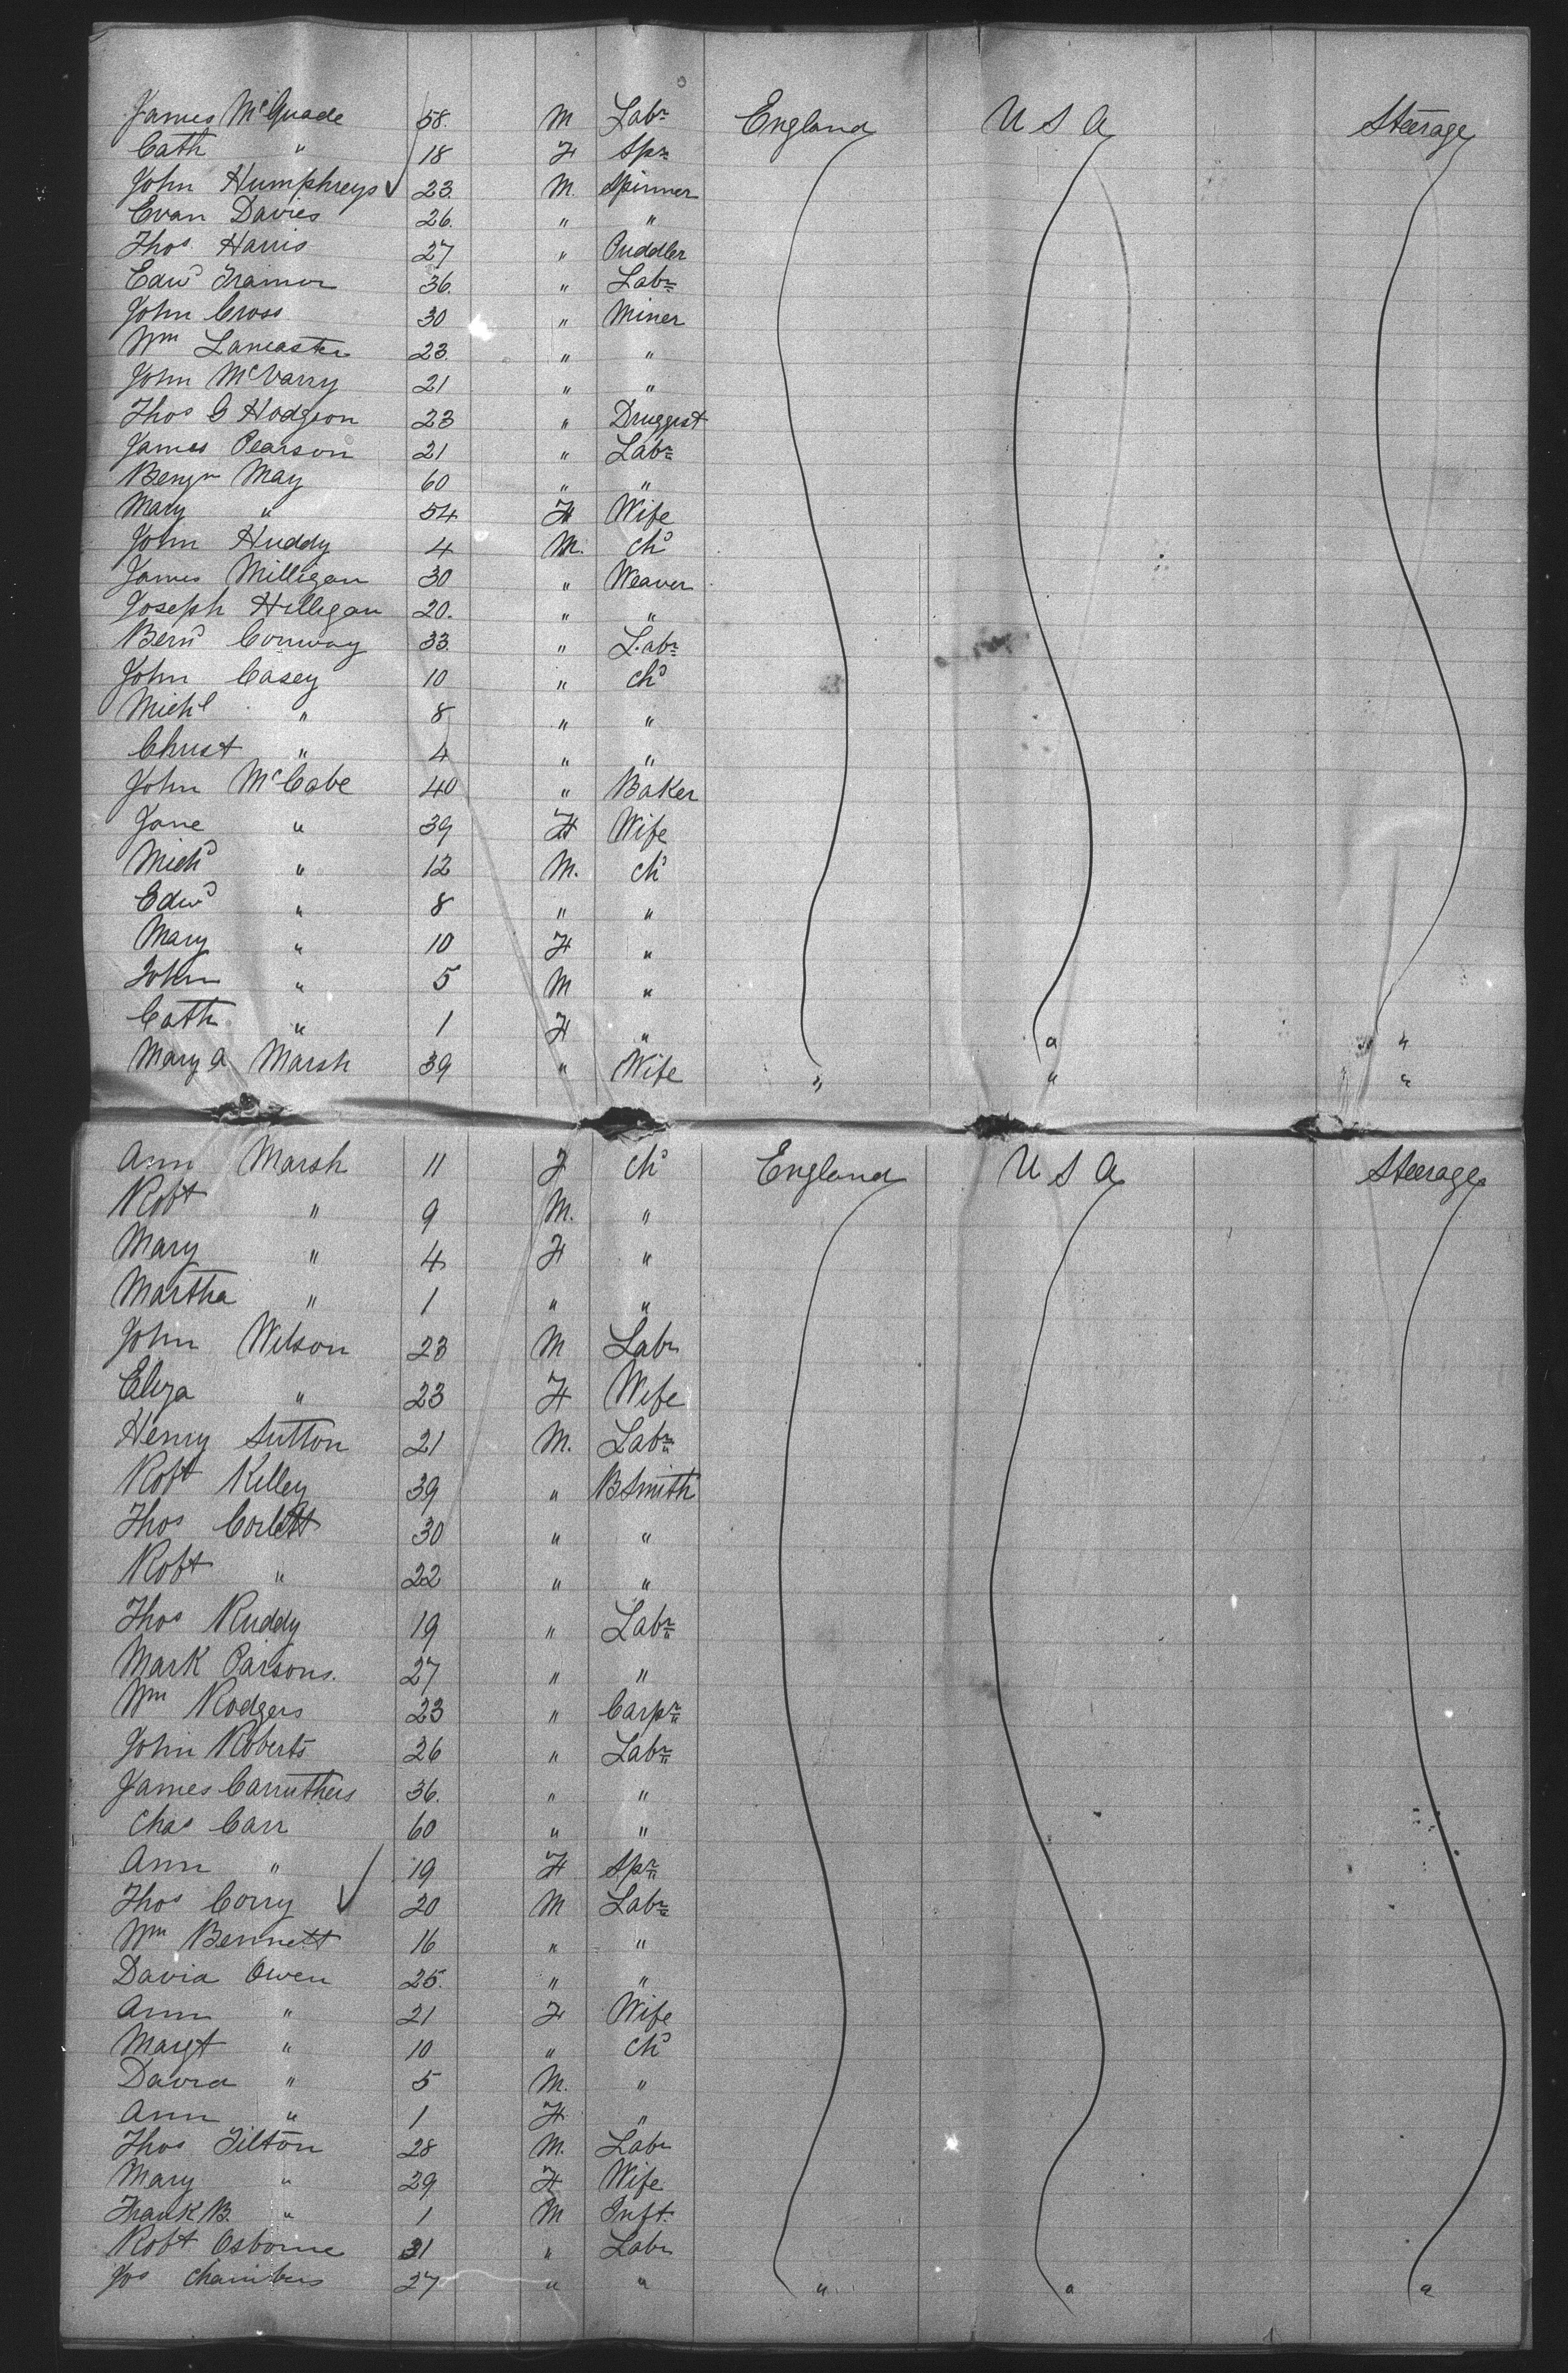 James McQuade 58. M Labr England U S A Steerage
Cath " 18 F Spr
John Humphreys 23. M. Spinner
Evan Davies 26. " "
Thos Harris 27 " Puddler
Edwd 36. " Labr
John Cross 30 " Miner
Wm Lancaster 23. " "
John McVarry 21 " "
Thos G Hodgson 23 " Druggist
James Pearson 21 " Labr
Benjn May 60 " "
Mary " 54 F Wife
John Huddy 4 M. chd
James Milligan 30 " Weaver
Joseph Hilligan 20. " "
Bernd Conway 33. " Labr
John Casey 10 " chd
Michl " 8 " "
Christ " 4 " "
John McCabe 40 " Baker
Jane " 39 F Wife
Michd " 12 M. chd
Edwd " 8 " "
Mary " 10 F "
John " 5 M "
Cath " 1 F " " "
Mary A Marsh 39 " Wife " " "
Ann Marsh 11 F chd England U S A Steerage
Robt " 9 M. "
Mary " 4 F "
Martha " 1 " "
John Wilson 23 M Labr
Eliza " 23 F Wife
Henry Sutton 21 M. Labr
Robt Killey 39 " BSmith
Thos Corlett 30 " "
Robt " 22 " "
Thos Ruddy 19 " Labr
Mark Parsons. 27 " "
Wm Rodgers 23 " Carpr
John Roberts 26 " Labr
James Carruthers 36. " "
Chas Carr 60 " "
Ann " 19 F Spr
Thos Corry 20 M Labr
Wm Bennett 16 " "
David Owen 25. " "
Ann " 21 F Wife
Margt " 10 " chd
David " 5 M. "
Ann " 1 F "
Thos Tilton 28 M. Labr
Mary " 29 F Wife
Frank B. " 1 M Inft.
Robt Osborne 31 " Labr
Jos Chambers 27 " " " " "